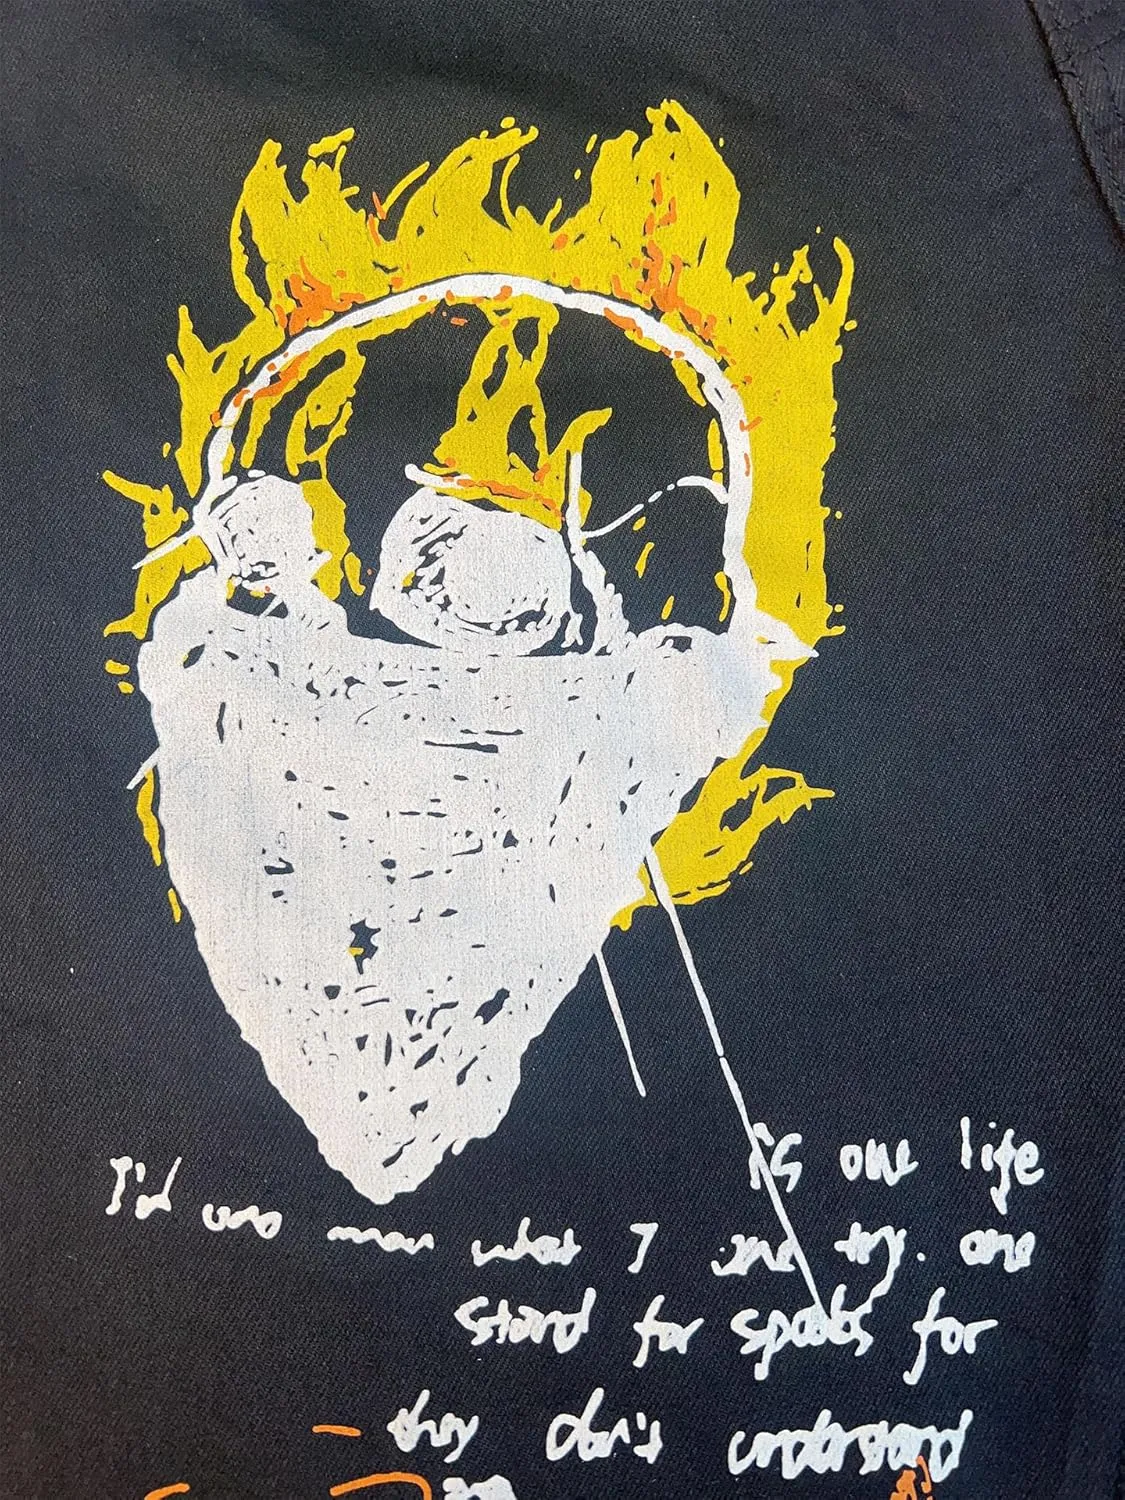 is out life
I'd uno man what I and try. one
stand for speaks for
they don't understand